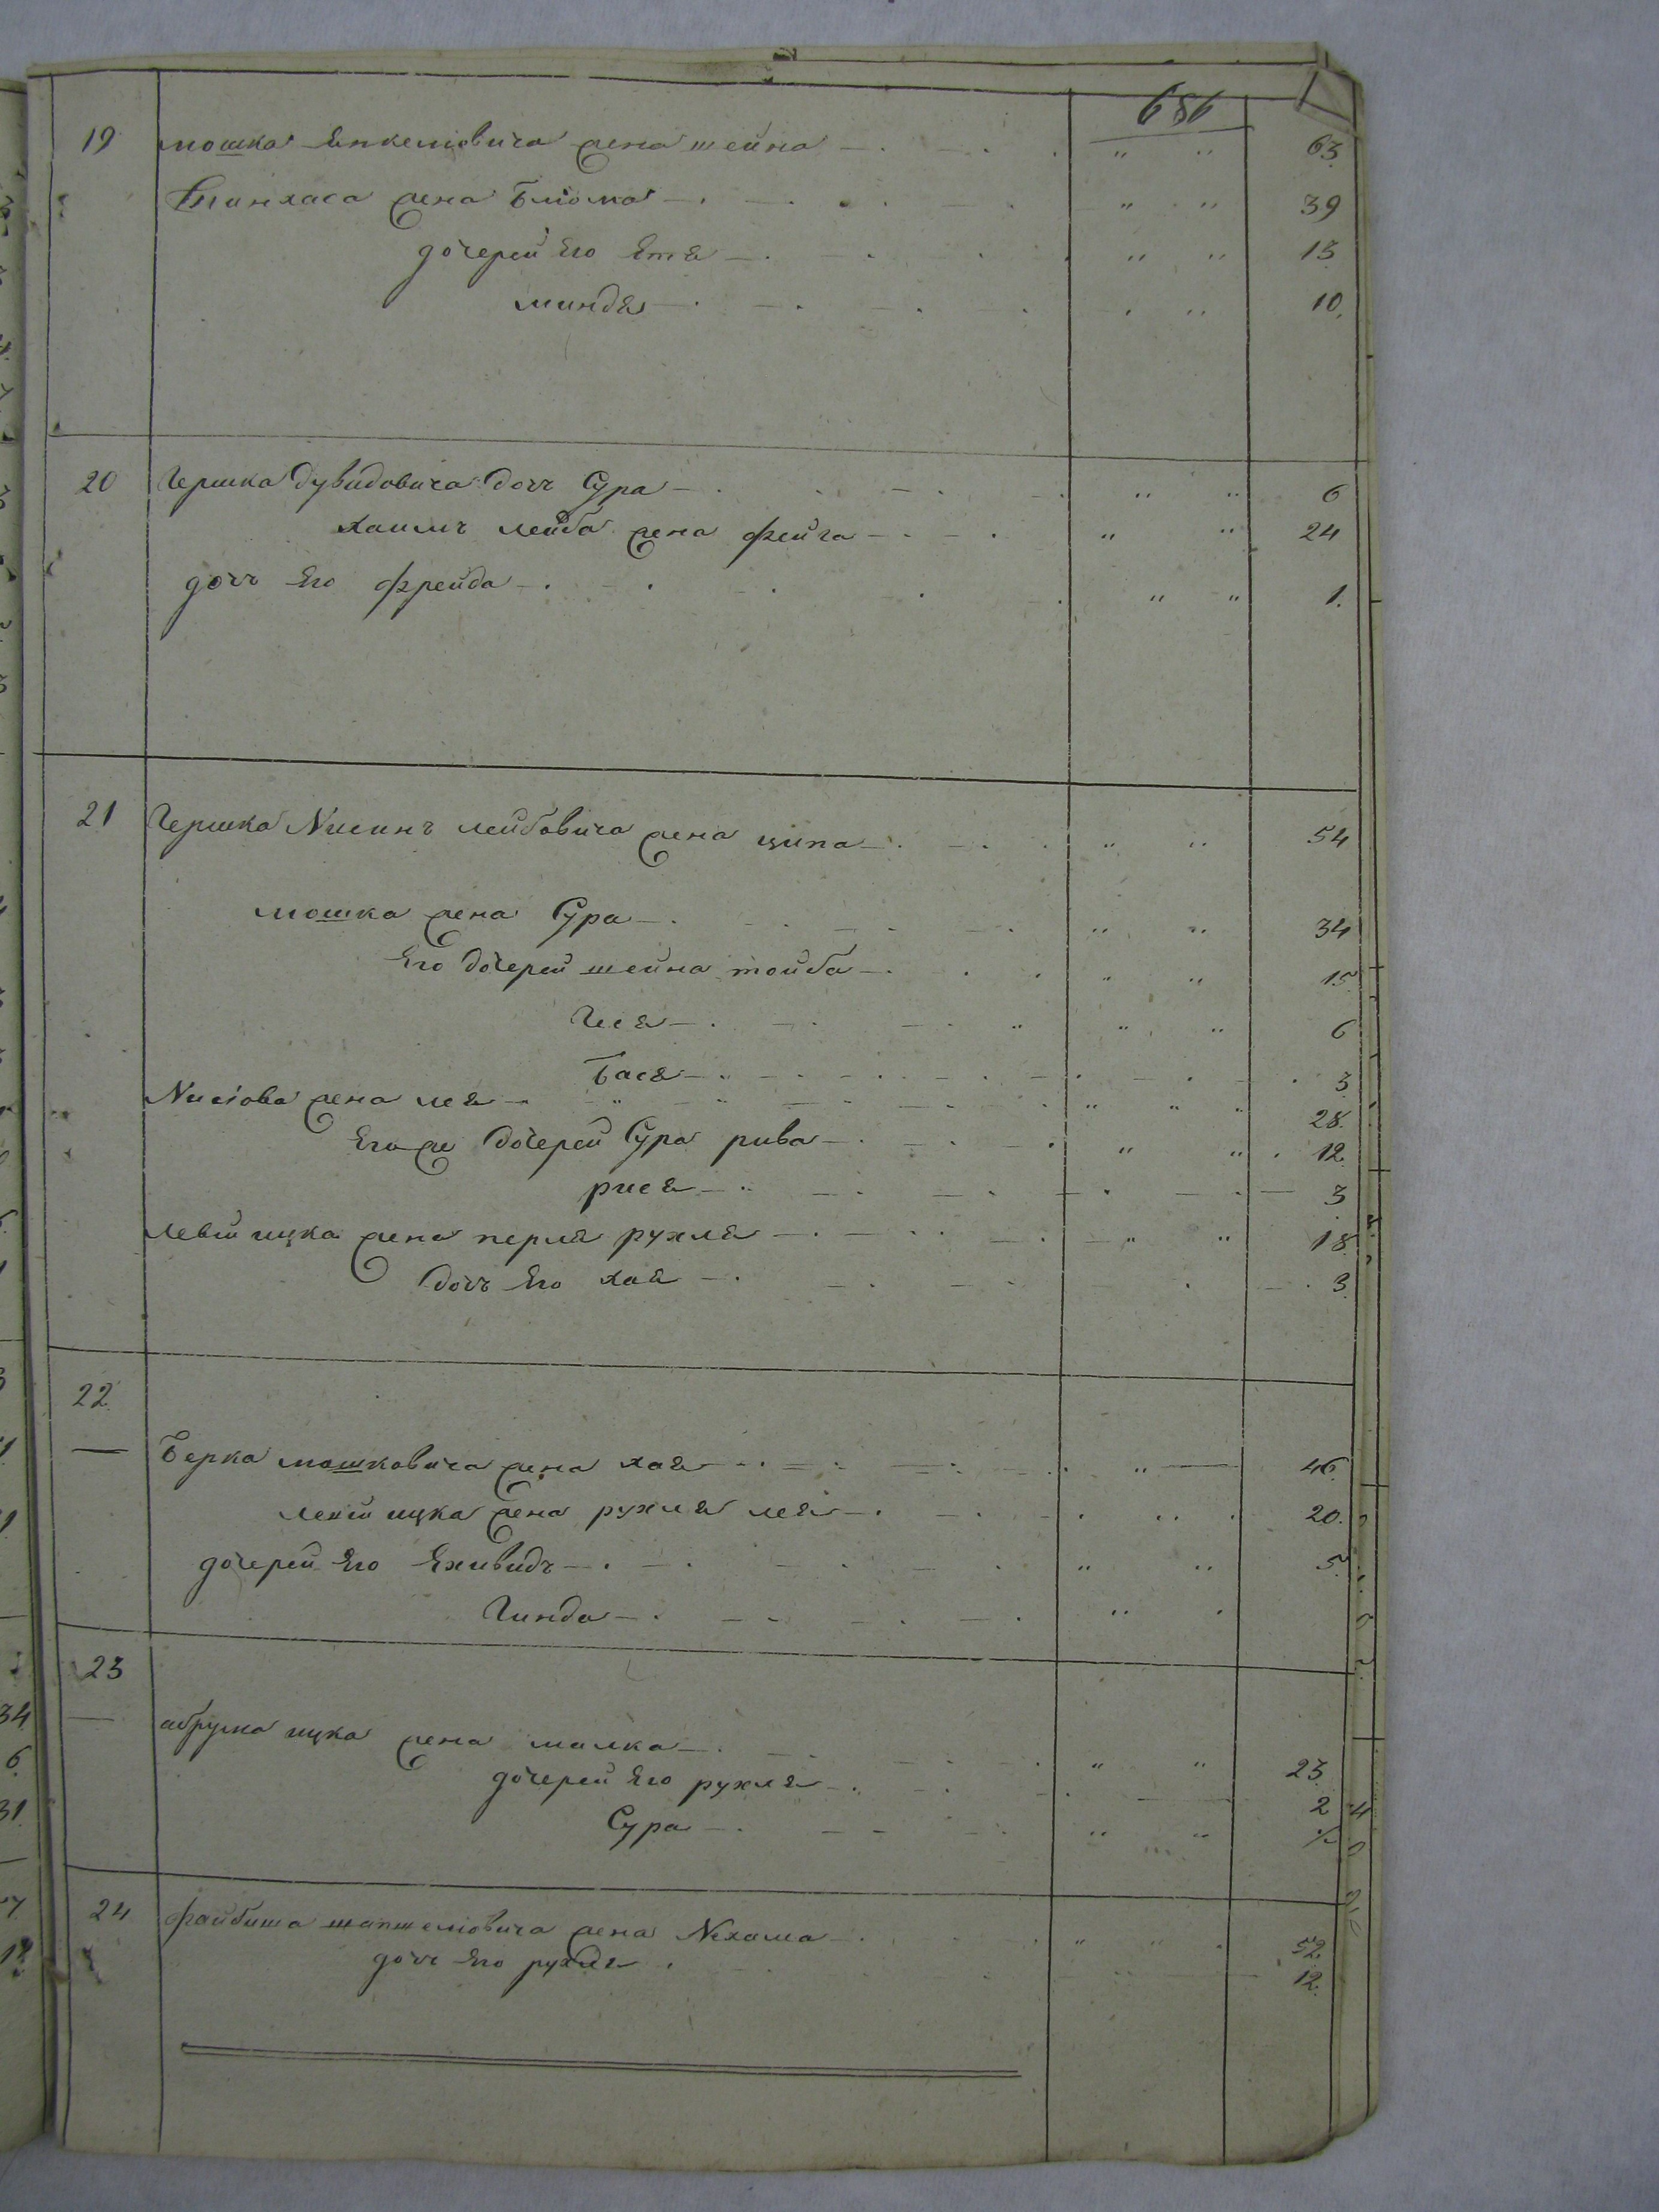 686
19 мошка Янкелiовича жена шейна 63
Пинхаса жена Блiома 39
дочерей Его Етя 13
миндя 10
20 Гершка Дувидовича Дочъ Сура 6
хаимъ лейба жена фейга 24
дочъ Его фрейда 1.
21 Гершка Нисинъ лейбовича жена ципа 54
мошка жена Сура 34
Его дочерей шейна тойба 15
Гися 6
Бася 3
Нисiова жена лея 28.
Его же дочерей Сура рива 12.
рися 3
левiй ицка жена перля рухля 18
Дочъ Его хая 3.
22.
Берка мошковича жена хая 46.
левiй ицка жена рухля лея 20.
дочерей Его Ехивидъ 5.
Гинда
23
абрума ицка жена малка 23
дочерей Его рухля 2
Сура ½
24 файбиша шапшелiовича жена Нехама 52.
дочъ Его рухля 12.